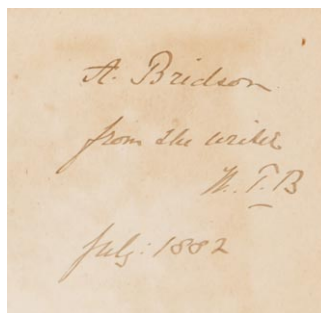 A. Bridson
from the writer
W. T. B
July: 1882